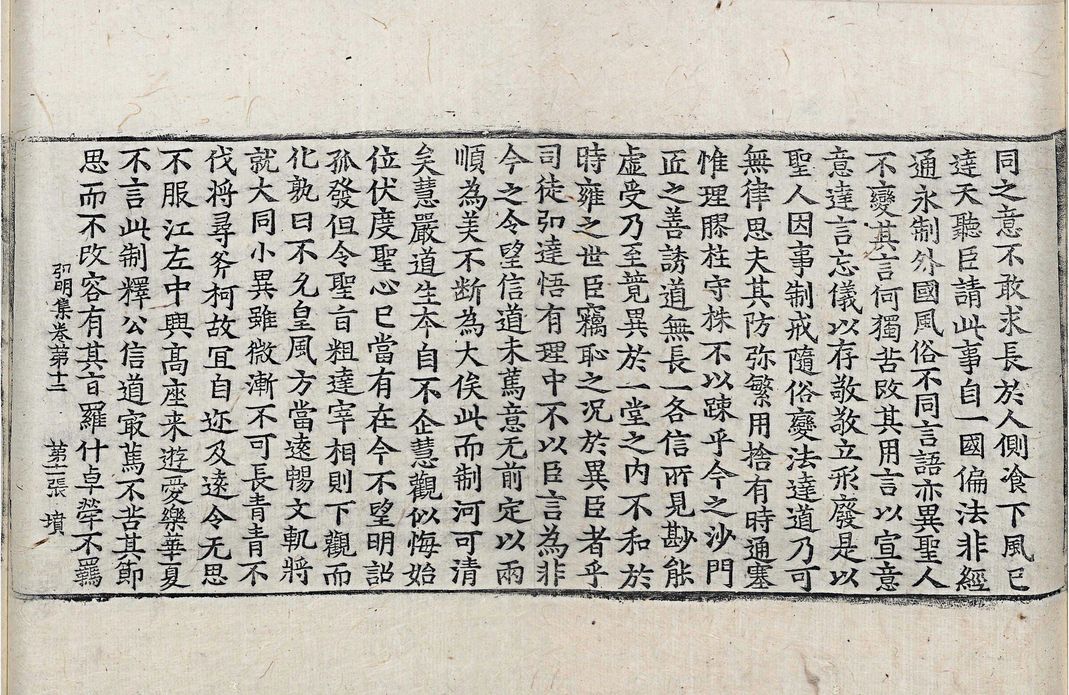 同之意不敢求長於人側飡下風已
達天聽臣請此事自一國偏法非經
通永制外國風俗不同言語亦異聖人
不變其言何獨苦改其用言以宣意
意達言忘儀以存敬敬立形廢是以
聖人因事制戒隨俗變法達道乃可
無律思夫其防弥繁用捨有時通塞
惟理膠柱守株不以踈乎今之沙門
匠之善誘道無長一各信所見尠能
虛受乃至競異於一堂之内不和於
時雍之世臣竊恥之况於異臣者乎
司徒弘達悟有理中不以臣言為非
今之令望信道未萬意无前定以兩
順為美不断為大俟此而制河可清
矣慧嚴道生夲自不企慧觀似悔始
位伏度聖心已當有在今不望明詔
孤發但令聖旨粗達宰相則下觀而
化孰曰不允皇風方當遠暢文軌將
就大同小異雖微漸不可長青青不
伐將尋斧柯故冝自迩及遠令无思
不服江左中興高座来遊愛樂華夏
不言此制釋公信道㝡萬不苦其節
思而不改容有其旨羅什卓犖不羈
弘明集卷苐十二 苐十一張 墳